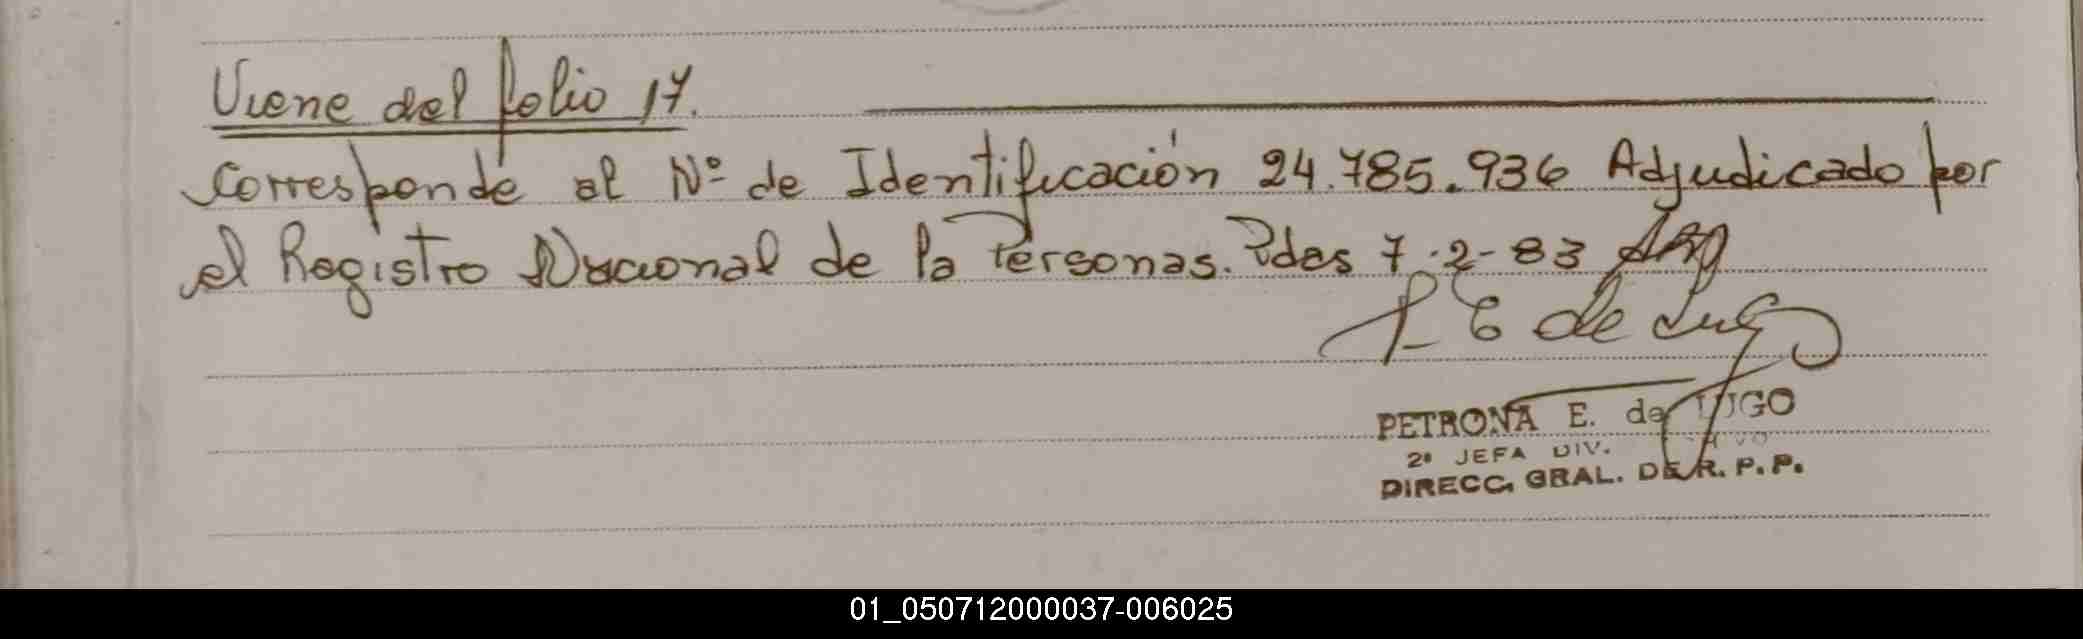 Viene del folio 17.
Corresponde al Nº de Identificación 24.785.936 Adjudicado por
el Registro Nacional de la Personas. Pdas 7-2-83
P E de Lugo
PETRONA E. de LUGO
2º JEFA DIV.
DIRECC. GRAL. DE R. P. P.
01_050712000037-006025